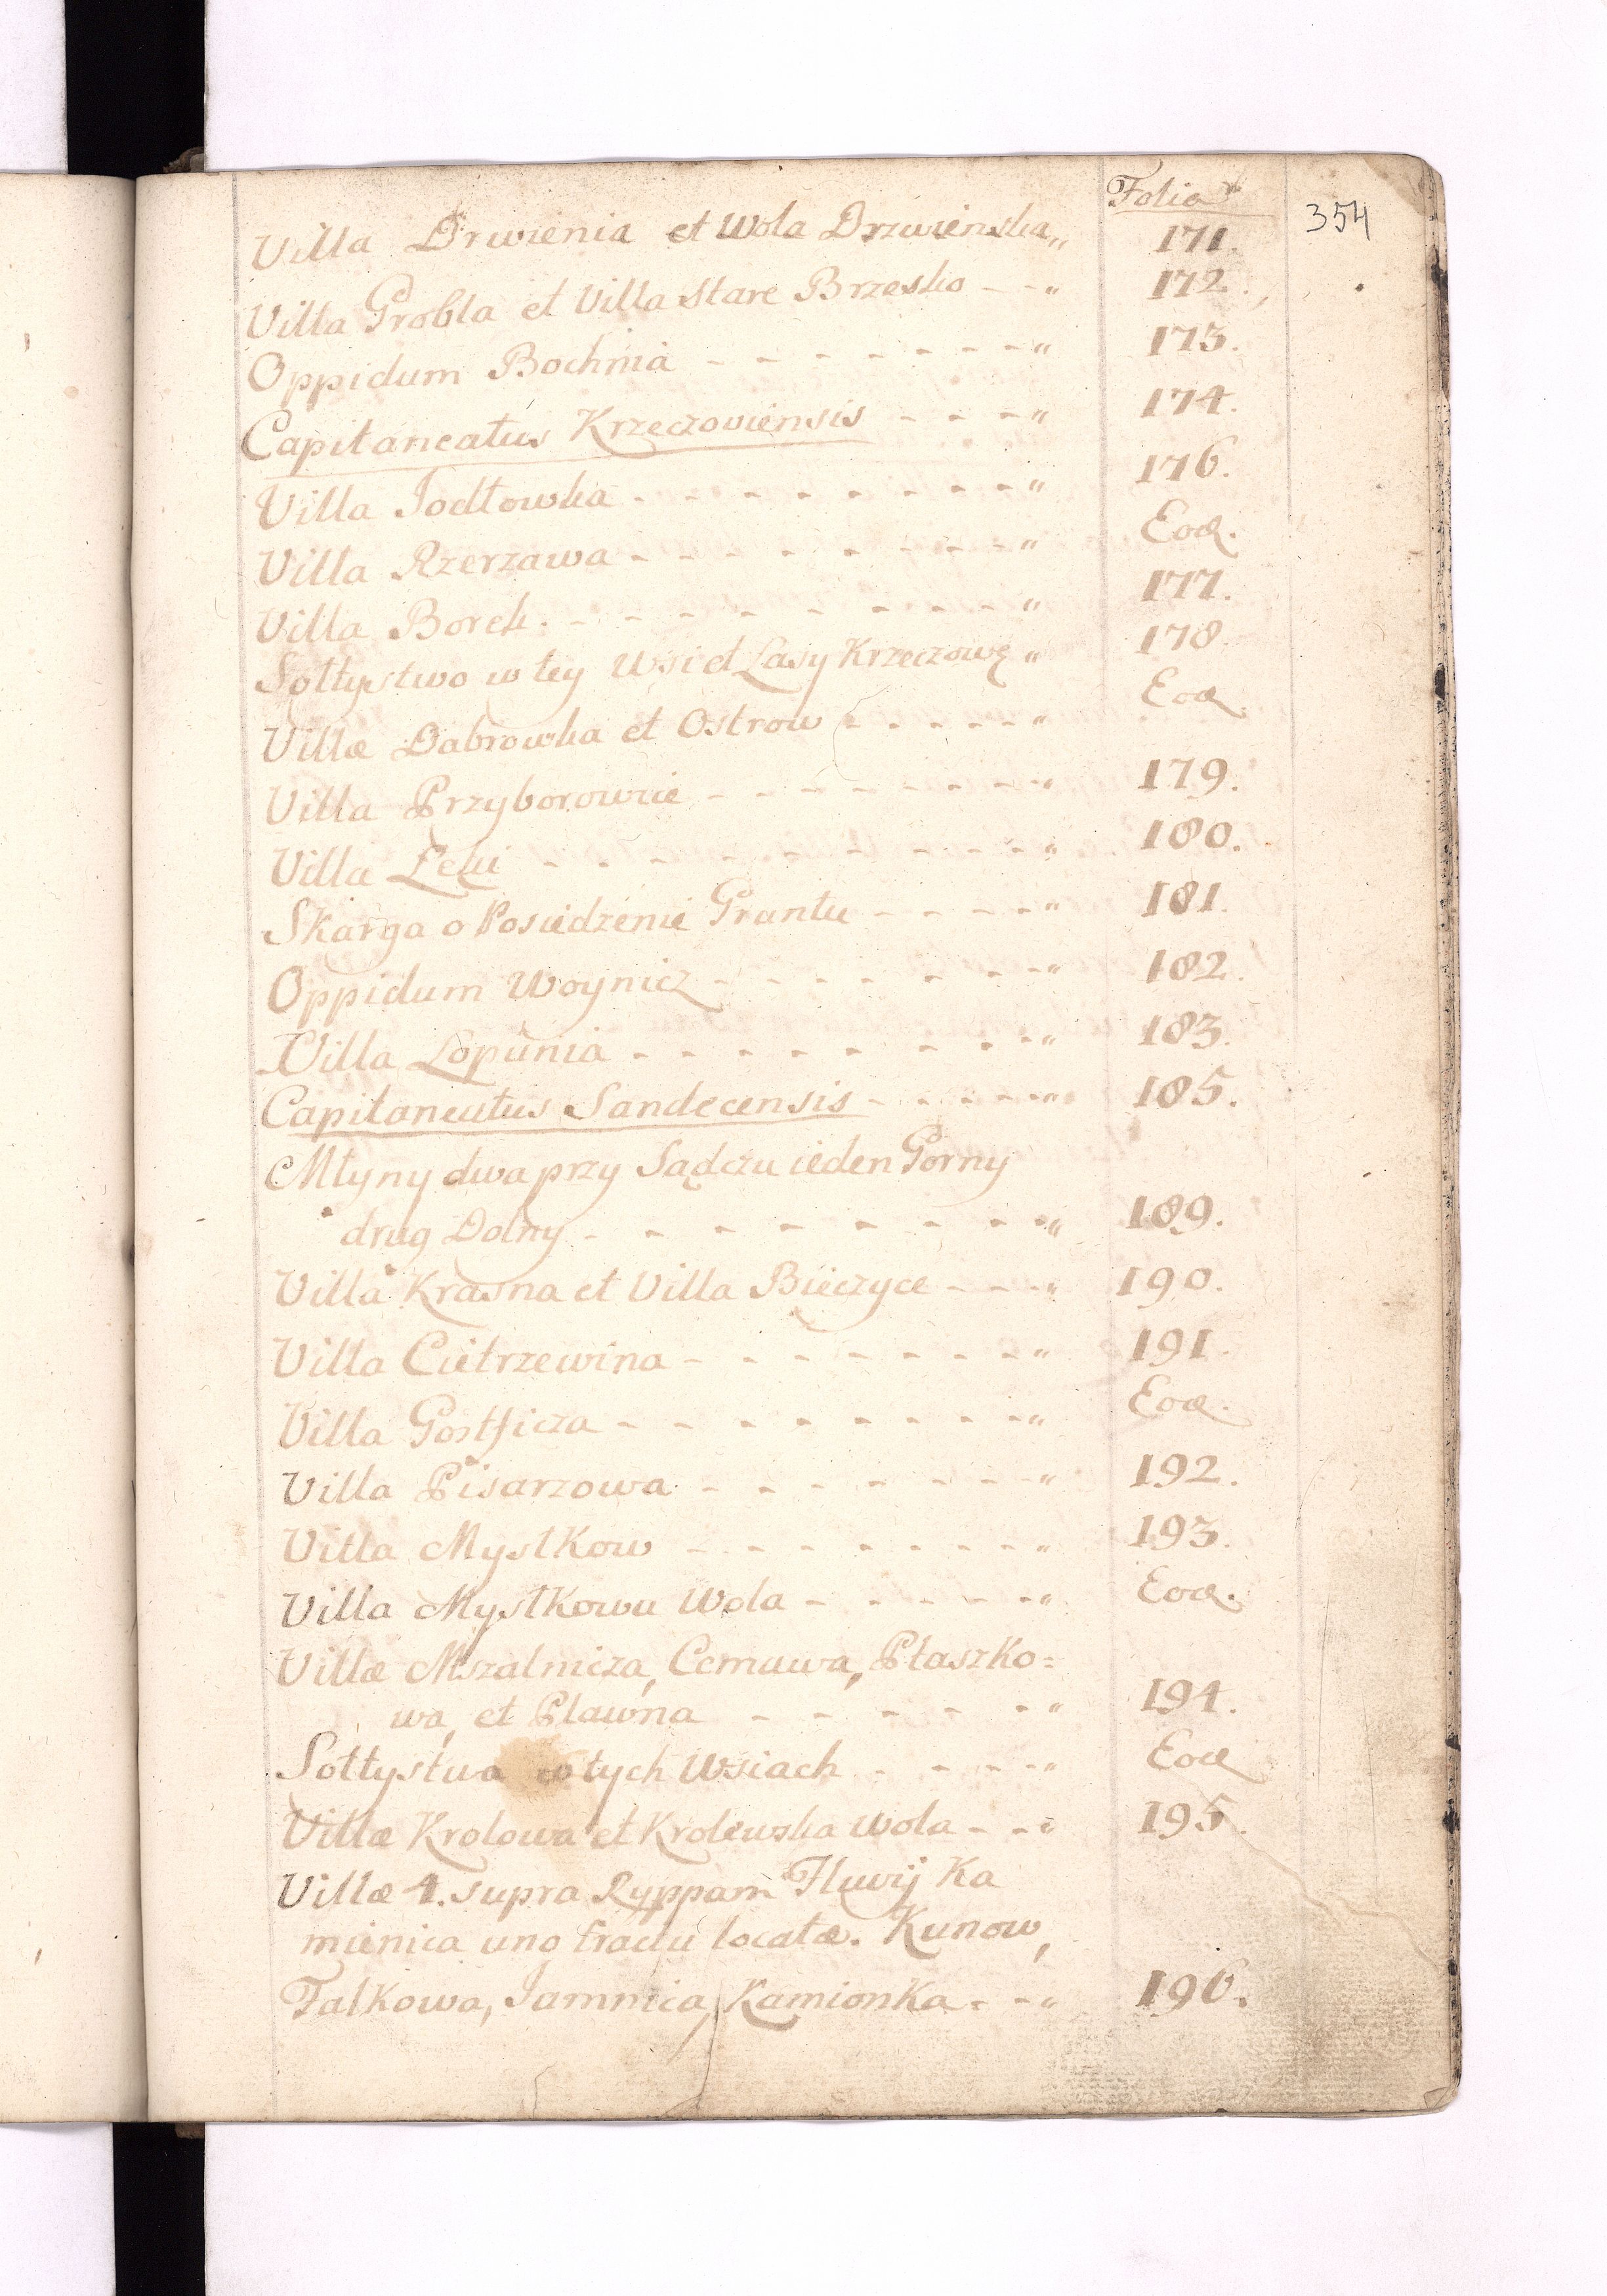 Folio
354
Villa Drwienia et Wola Drzwienska „ 171.
Villa Grobla et Villa Stare Brzesko - - „ 172.
Oppidum Bochnia - - - - - - - „ 173.
Capitaneatus Krzeczoviensis - - - „ 174.
Villa Jodłowka - - - - - - - - „ 176.
Villa Rzerzawa - - - - - - - - „ Eod.
Villa Borek - - - - - - - - „ 177.
Sołtystwo w tey Wsi et Lasy Krzeczowę „ 178.
Villæ Dabrowka et Ostrow - - - - - „ Eod.
Villa Przyborowie - - - - - - - „ 179.
Villa Łęki - - - - - - - - - „ 180.
Skarga o Posiedzenie Gruntu - - - - „ 181.
Oppidum Woynicz - - - - - - - „ 182.
Villa Łopunia - - - - - - - - „ 183.
Capitaneatus Sandecensis - - - - - „ 185.
Młyny dwa przy Sądczu ieden Gorny
drug Dolny - - - - - - - - „ 189.
Villa Krasna et Villa Bieczyce - - - „ 190.
Villa Cietrzewina - - - - - - - „ 191.
Villa Gostficza - - - - - - - - „ Eod.
Villa Pisarzowa - - - - - - - „ 192.
Villa Mystkow - - - - - - - - „ 193.
Villa Mystkowu Wola - - - - - „ Eod.
Villæ Mszalnicza, Cemuwa, Ptaszko=
wa, et Plawna - - - - - - „ 194.
Sołtystwa w tych Wsiach - - - - „ Eod
Villæ Krolowa et Krolewska Wola - - „ 195.
Villæ 4. supra Ryppam Fluvij Ka
mienica uno tractu locatæ. Kunow,
Falkowa, Jamnica, Kamionka - - „ 196.